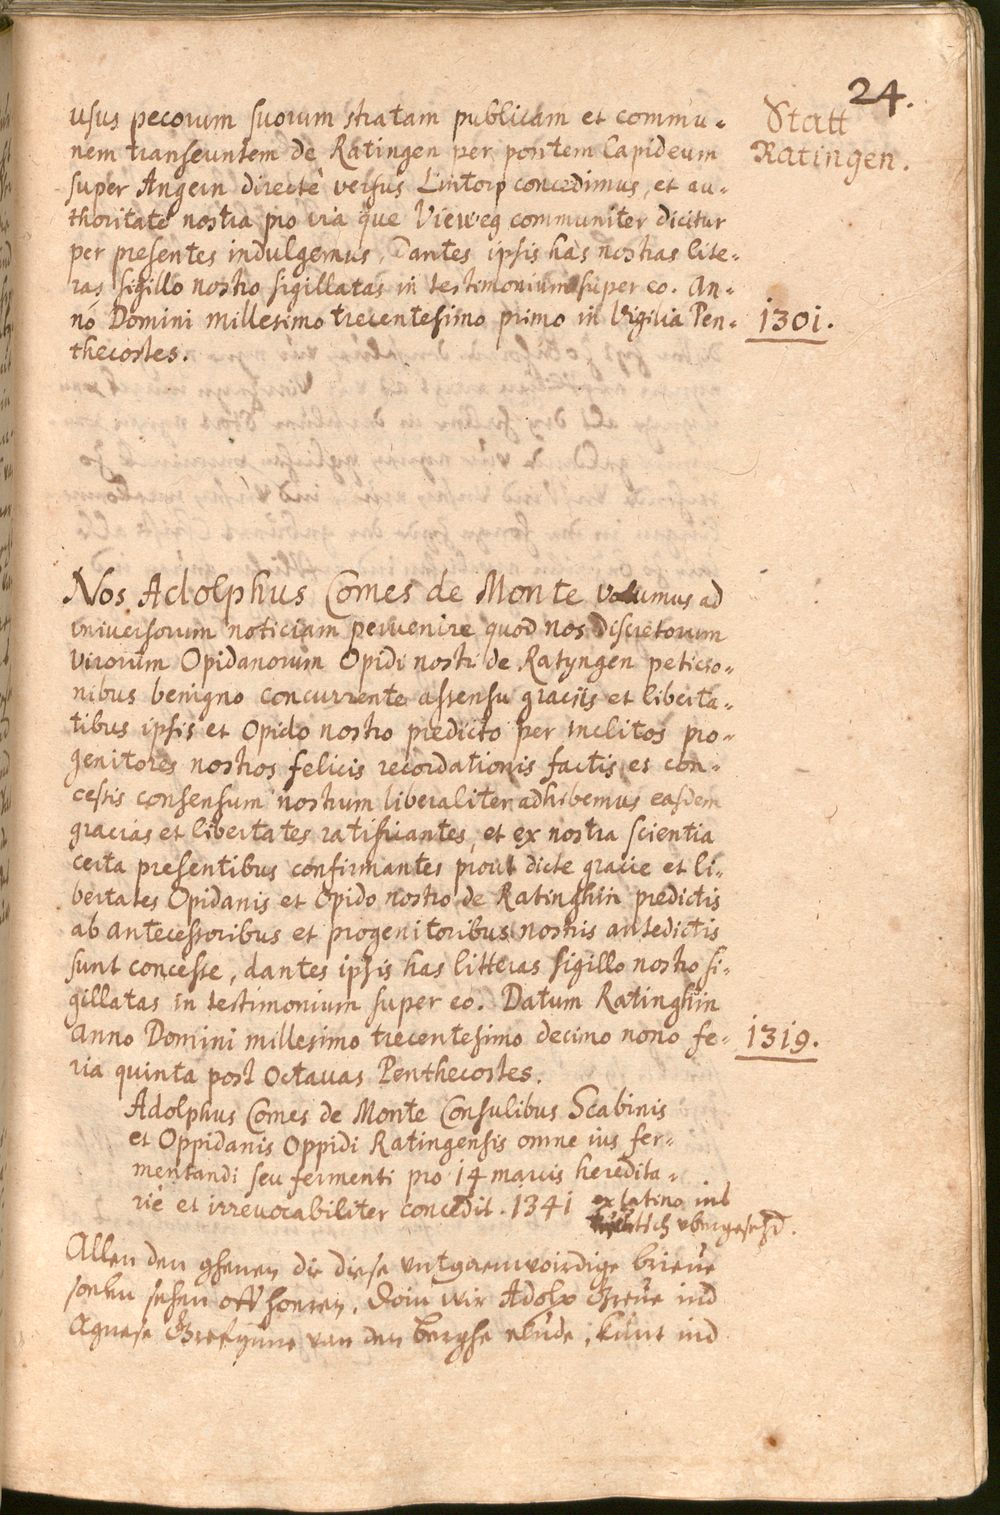 24.
Statt
Ratingen.
usus pecorum suorum stratam publicam et commu-
nem transeuntem de Ratingen per pontem lapideum
super Angern directè versus Lintorp concedimus, et au-
thoritate nostra pro via que Vieweg communiter dicitur
per presentes indulgemus, Dantes ipsis has nostras lite-
ras sigillo nostro sigillatas in testimonium super eo. An-
no Domini millesimo trecentesimo primo in Vigilia Pen- 1301.
thecostes.
Nos Adolphus Comes de Monte volumus ad
universorum noticiam pervenire quod nos discretorum
virorum Opidanorum Opidi nostri de Ratyngen peticio-
nibus benigno concurrente assensu graciis et liberta-
tibus ipsis et Opido nostro predicto per inclitos pro-
genitores nostros felicis recordationis factis et con-
cessis consensum nostrum liberaliter adhibemus easdem
gracias et libertates ratificantes, et ex nostra scientia
certa presentibus confirmantes prout dicte gracie et li-
bertates Opidanis et Opido nostro de Ratinghin predictis
ab antecessoribus et progenitoribus nostris antedictis
sunt concesse, dantes ipsis has litteras sigillo nostro si-
gillatas in testimonium super eo. Datum Ratinghin
anno Domini millesimo trecentesimo decimo nono fe- 1319.
ria quinta post Octavas Penthecostes.
Adolphus Comes de Monte Consulibus Scabinis
et Oppidanis Oppidi Ratingensis omne ius fer-
mentandi seu fermenti pro 14 marcis heredita-
rie et irrevocabiliter concedit. 1341 ex latino ins
vbergesetzd.
Allen den ghenen die diese vntgaenwoirdige brieve
soelen sehen off hoeren. Doin wir Adolp Greve ind
Agnese Grefynne van den Berghe elude, kunt ind